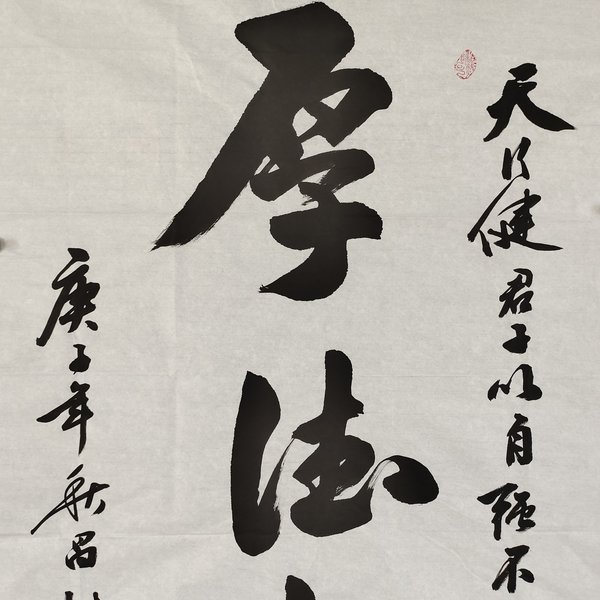 天行健君子以自强不
厚德
庚子年秋昌